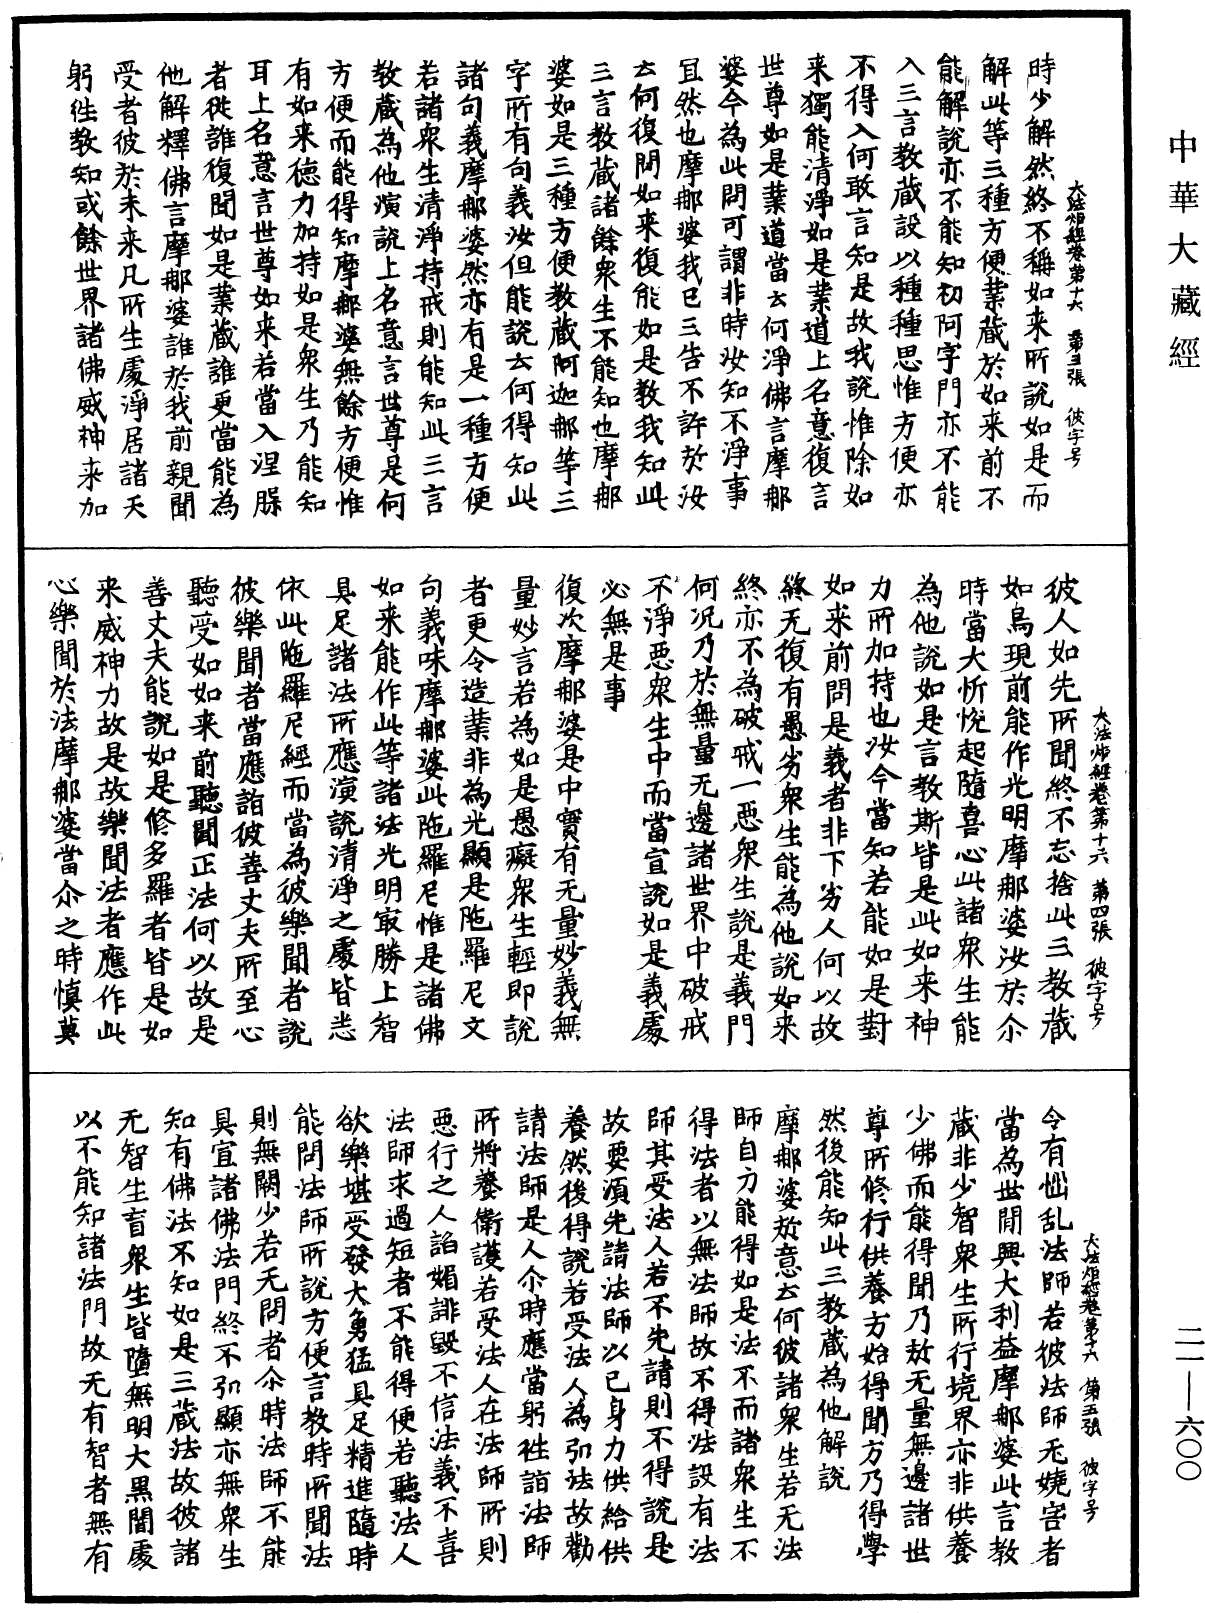 中華大藏經
時少解然終不稱如来所說如是而
大法炬經卷第十六　第三張　彼字号
解此等三種方便業藏於如来前不
能解說亦不能知初阿字門亦不能
入三言教藏設以種種思惟方便亦
不得入何敢言知是故我說惟除如
来獨能清淨如是業道上名意復言
世尊如是業道當云何淨佛言摩那
婆今為此問可謂非時汝知不淨事
且然也摩那婆我已三告不許於汝
云何復問如来復能如是教我知此
三言教藏諸餘衆生不能知也摩那
婆如是三種方便教藏阿迦那等三
字所有句義汝但能說云何得知此
諸句義摩那婆然亦有是一種方便
若諸衆生清淨持戒則能知此三言
教藏為他演說上名意言世尊是何
方便而能得知摩那婆無餘方便惟
有如来德力加持如是衆生乃能知
耳上名意言世尊如来若當入涅槃
者從誰復聞如是業藏誰更當能為
他解釋佛言摩那婆誰於我前親聞
受者彼於未来凡所生處淨居諸天
躬往教知或餘世界諸佛威神来加
彼人如先所聞終不忘捨此三教藏
大法炬經卷第十六　第四張　彼字号
如鳥現前能作光明摩那婆汝於尒
時當大忻悅起隨喜心此諸衆生能
為他說如是言教斯皆是此如来神
力所加持也汝今當知若能如是對
如来前問是義者非下劣人何以故
終无復有愚劣衆生能為他說如来
終亦不為破戒一惡衆生說是義門
何況乃於無量无邊諸世界中破戒
不淨惡衆生中而當宣說如是義處
必無是事
復次摩那婆是中實有无量妙義無
量妙言若為如是愚癡衆生輕即說
者更令造業非為光顯是陁羅尼文
句義味摩那婆此陁羅尼惟是諸佛
如来能作此等諸法光明㝡勝上智
具足諸法所應演說清淨之處皆悉
依此陁羅尼經而當為彼樂聞者說
彼樂聞者當應詣彼善丈夫所至心
聽受如如来前聽聞正法何以故是
善丈夫能說如是修多羅者皆是如
来威神力故是故樂聞法者應作此
心樂聞於法摩那婆當尒之時慎莫
令有惱乱法師若彼法師无嬈害者
大法炬經卷第十六　第五張　彼字号
當為世間興大利益摩那婆此言教
藏非少智衆生所行境界亦非供養
少佛而能得聞乃於无量無邊諸世
尊所修行供養方始得聞方乃得學
然後能知此三教藏為他解說
摩那婆於意云何彼諸衆生若无法
師自力能得如是法不而諸衆生不
得法者以無法師故不得法設有法
師其受法人若不先請則不得說是
故要須先請法師以己身力供給供
養然後得說若受法人為弘法故勸
請法師是人尒時應當躬往詣法師
所將養衛護若受法人在法師所則
惡行之人諂媚誹毀不信法義不喜
法師求過短者不能得便若聽法人
欲樂堪受發大勇猛具足精進隨時
能問法師所說方便言教時所聞法
則無闕少若无問者尒時法師不能
具宣諸佛法門終不弘顯亦無衆生
知有佛法不知如是三藏法故彼諸
无智生盲衆生皆墮無明大黑闇處
以不能知諸法門故无有智者無有
二一—六〇〇